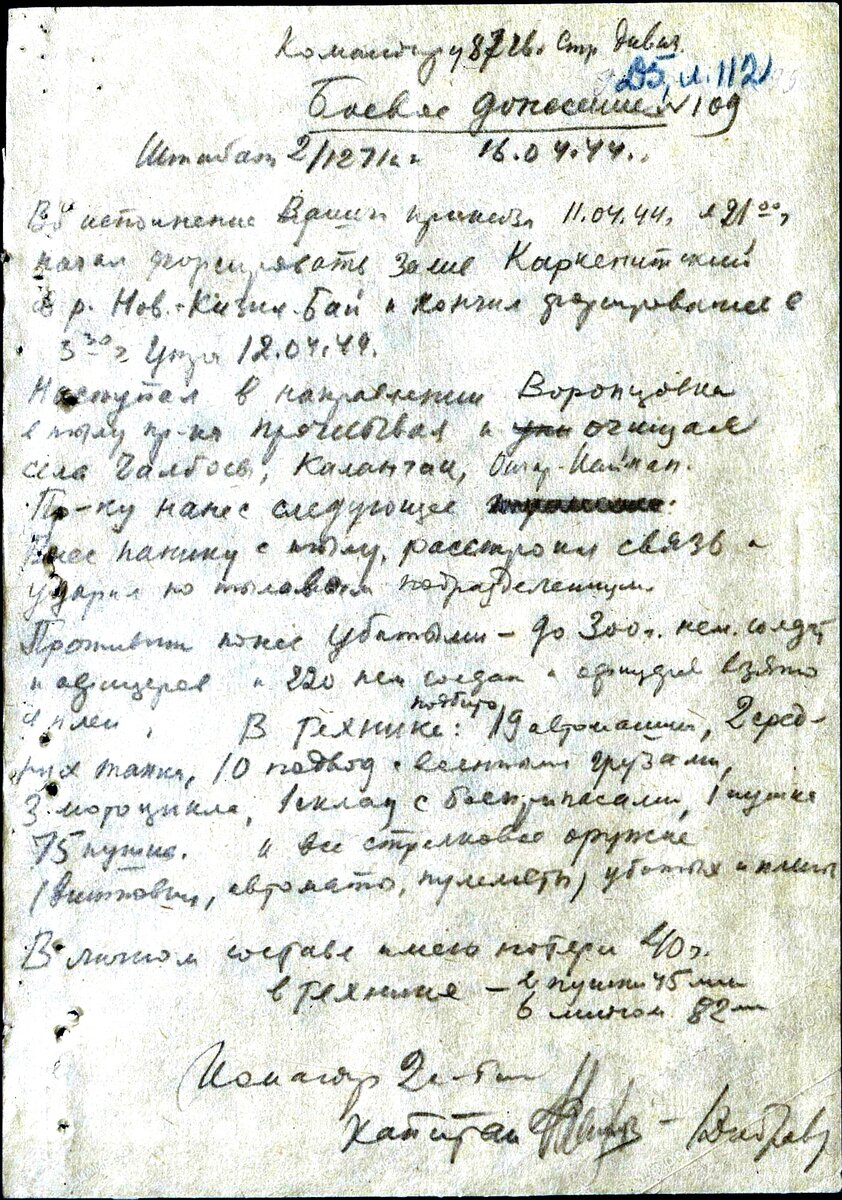 Командиру 87 гв. стр. дивиз.
л. 112
Боевое донесение № 109
Штабат 2/1271 16.04.44.
Во исполнение Вашего приказа 11.04.44, в 21 00
начал форсировать залив Каркенитский
в р. Нов.-Кизил-Бай и кончил форсирование в
3 30 утра 12.04.44.
Наступал в направлении Воронцовка
в тылу пр-ка прочесывал и очищал
села Чалбосы, Каланчак,
Пр-ку нанес следующее
Внес панику с тылу, расстроил связь и
ударил по тыловым подразделениям.
Противник понес убитыми – до 300 ч. нем. солдат
и офицеров и 220 нем солдат и офицеров взято
в плен, В технике: подбито 19 автомашин, 2 сред-
них танка, 10 подвод с военными грузами,
3 мотоцикла, 1 склад с боеприпасами, 1 пушка
75 пушка. и все стрелковое оружие
(винтовки, автоматы, пулеметы) убитых и плен
В личном составе имею потери 40 ч.
в технике – 2 пушки 45 мм
6 мином 82 мм
Командир 2 с-бат
капитан